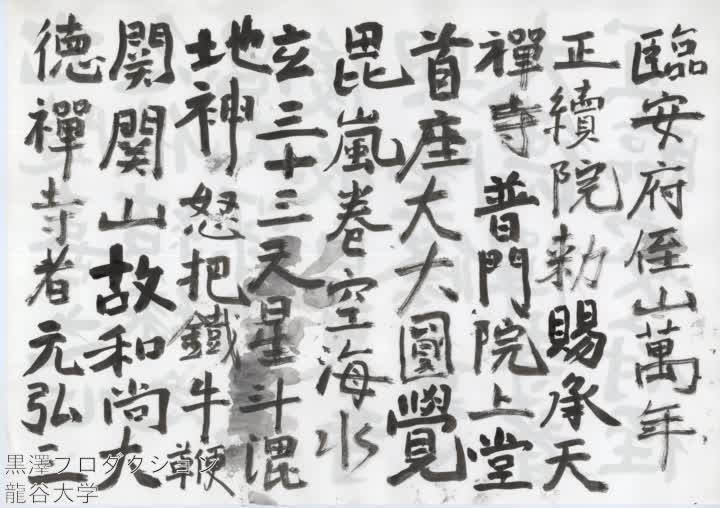 臨安府径山萬年
正續院勅賜承天
禪寺普門院上堂
首座大大圓覺
毘嵐巻空海水
玄三十三天星斗混
地神怒把鐵牛鞭
関関山故和尚大
徳禪寺者元弘三
黒澤プロダクション
龍谷大学